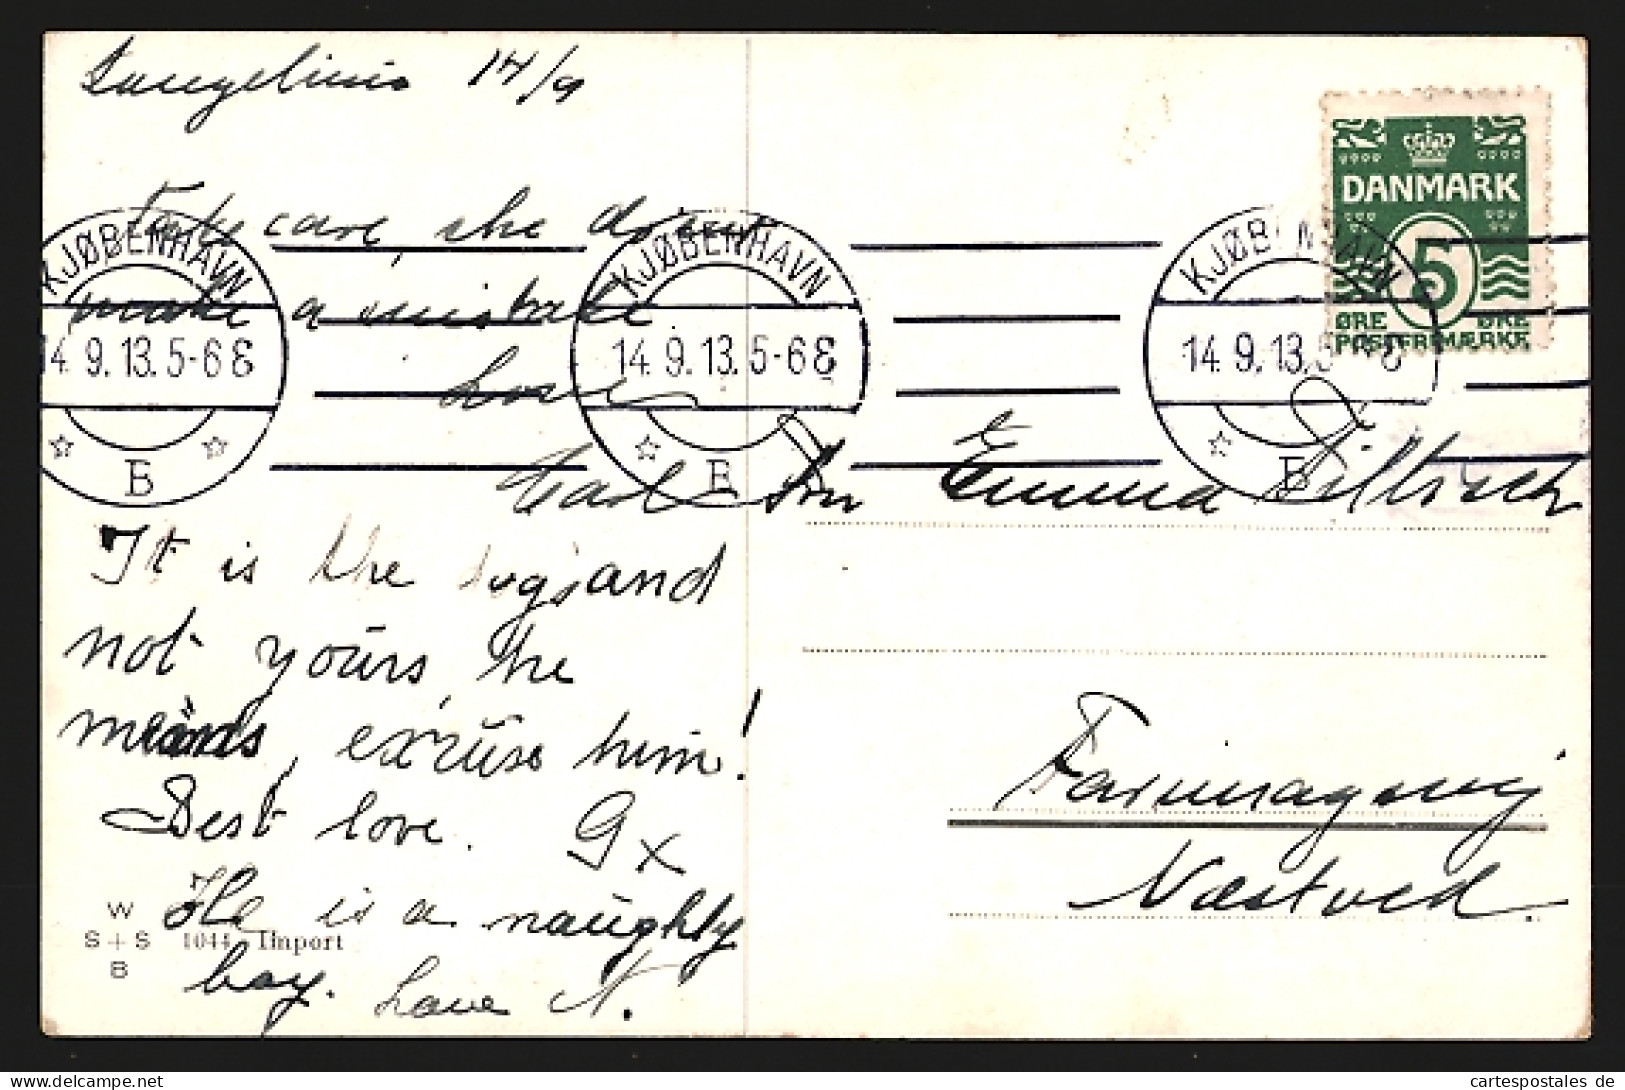 Langelinie 14/9
Take care, she doesn't
make a mistake
Love
Carl
It is the dog's and
not yours, he
means, excuse him!
Best love. G x
He is a naughty
boy. Love N.
W
S+S 1044 Import
B
KJØBENHAVN
14.9.13.5-6E
B
KJØBENHAVN
14.9.13.5-6E
B
KJØBENHAVN
14.9.13.5-6E
B
DANMARK
5
ØRE ØRE
POSTFRIMÆRKE
Frk Emma
Farimagsvej
Næstved.
cartespostales de